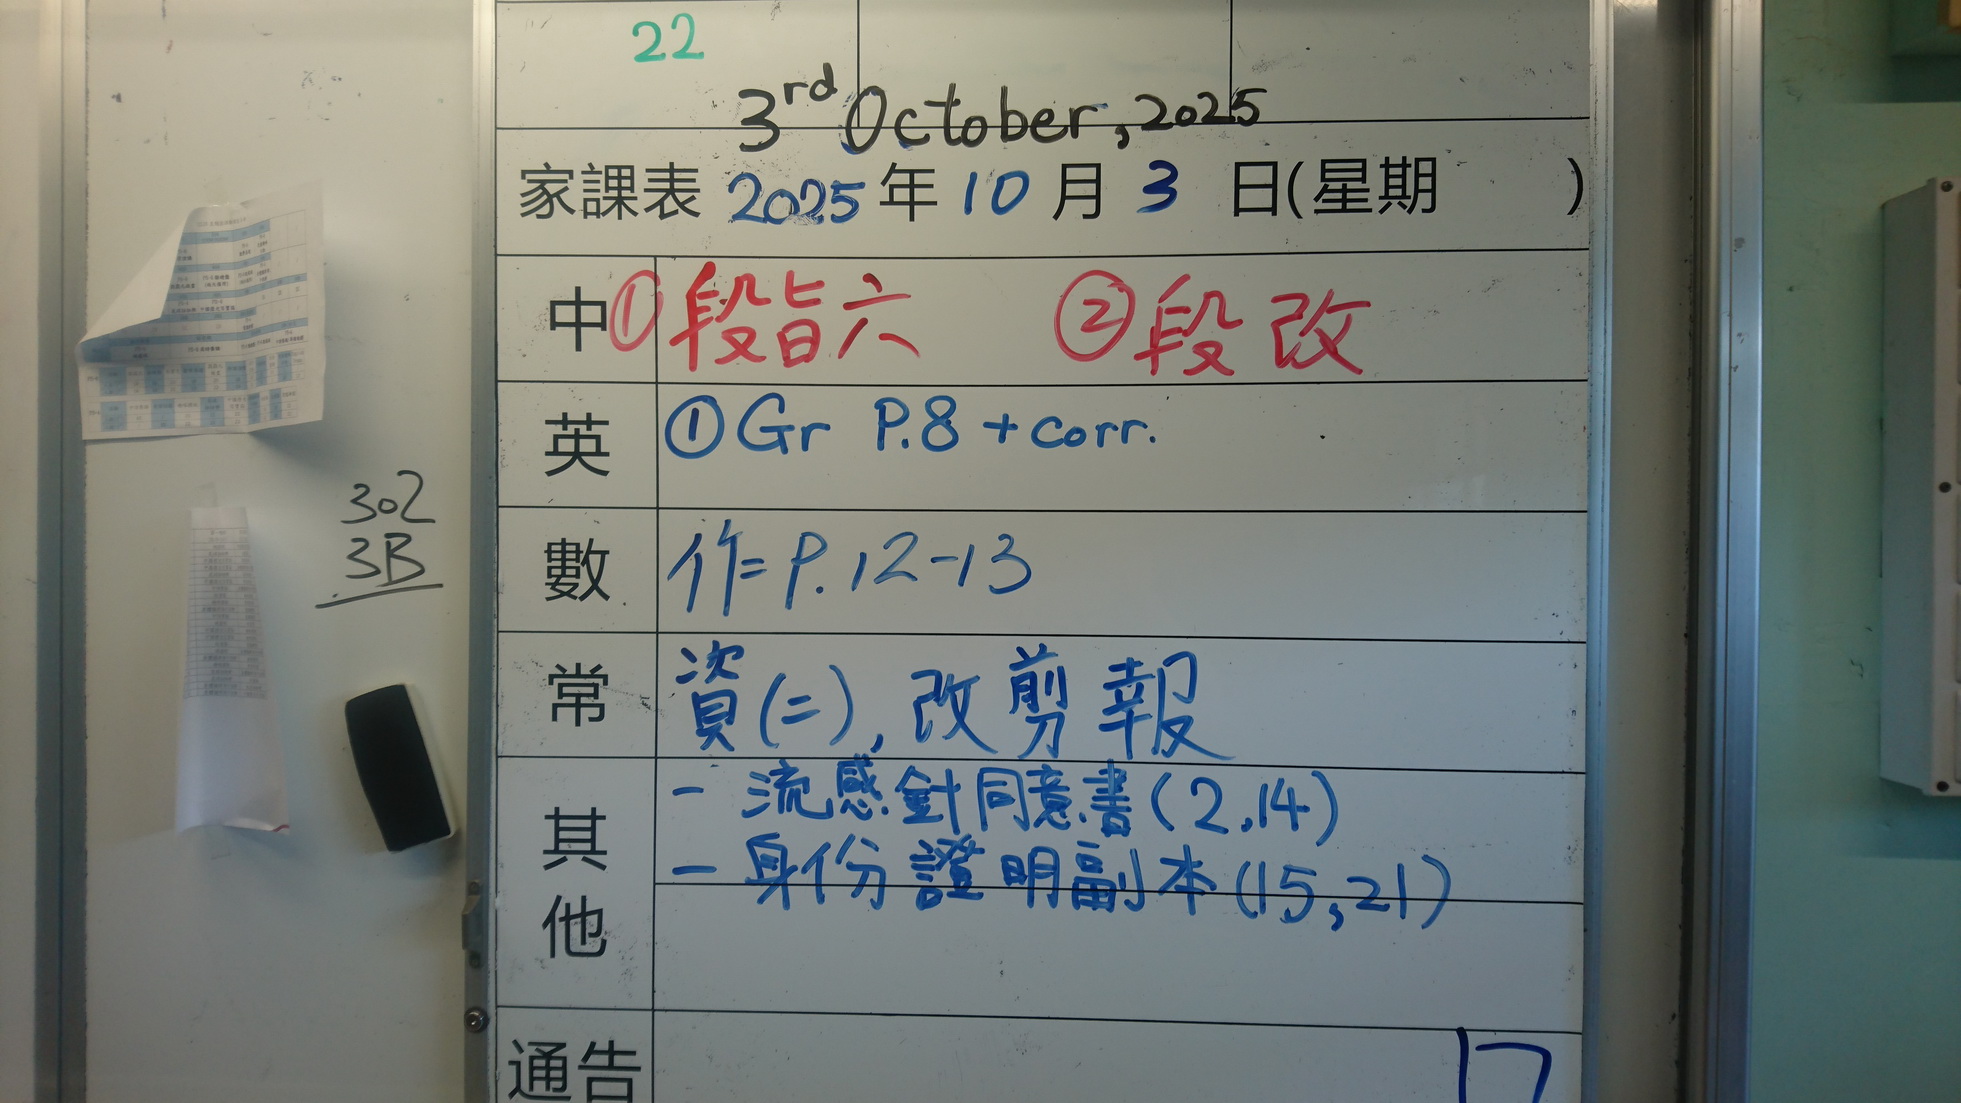 22
3rd October, 2025
家課表 2025年 10月 3日(星期 )
中 ①段旨六 ②段改
英 ①Gr P.8 + corr.
數 作= P.12-13
常 資(二), 改剪報
其他 - 流感針同意書(2,14)
- 身份證明副本(15,21)
通告
302
3B